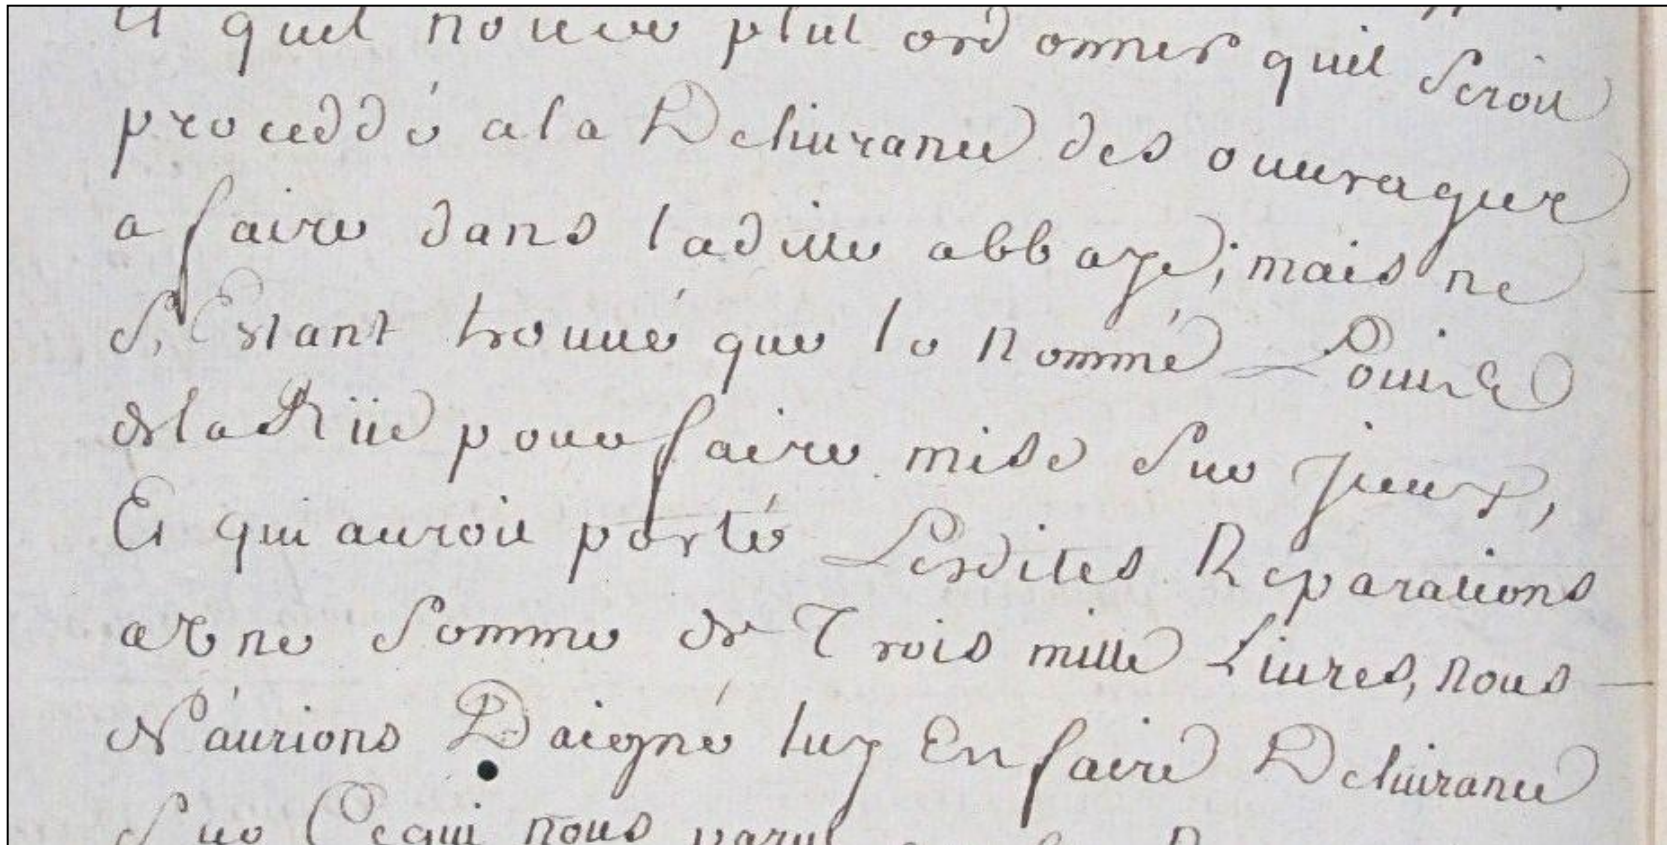 Et quil nous plut ordonner quil seroit
proceddé a la Delivrance des ouvrages
a faire dans laditte abbaye; mais ne
s'Estant trouvé que le nommé Louis
de la Rüe pour faire mise sur yceux,
Et qui auroit porté Lesdites Reparations
a Une somme de Trois mille Livres, nous
N'aurions Daigné luy En faire Delivrance
sur Ce qui nous parut